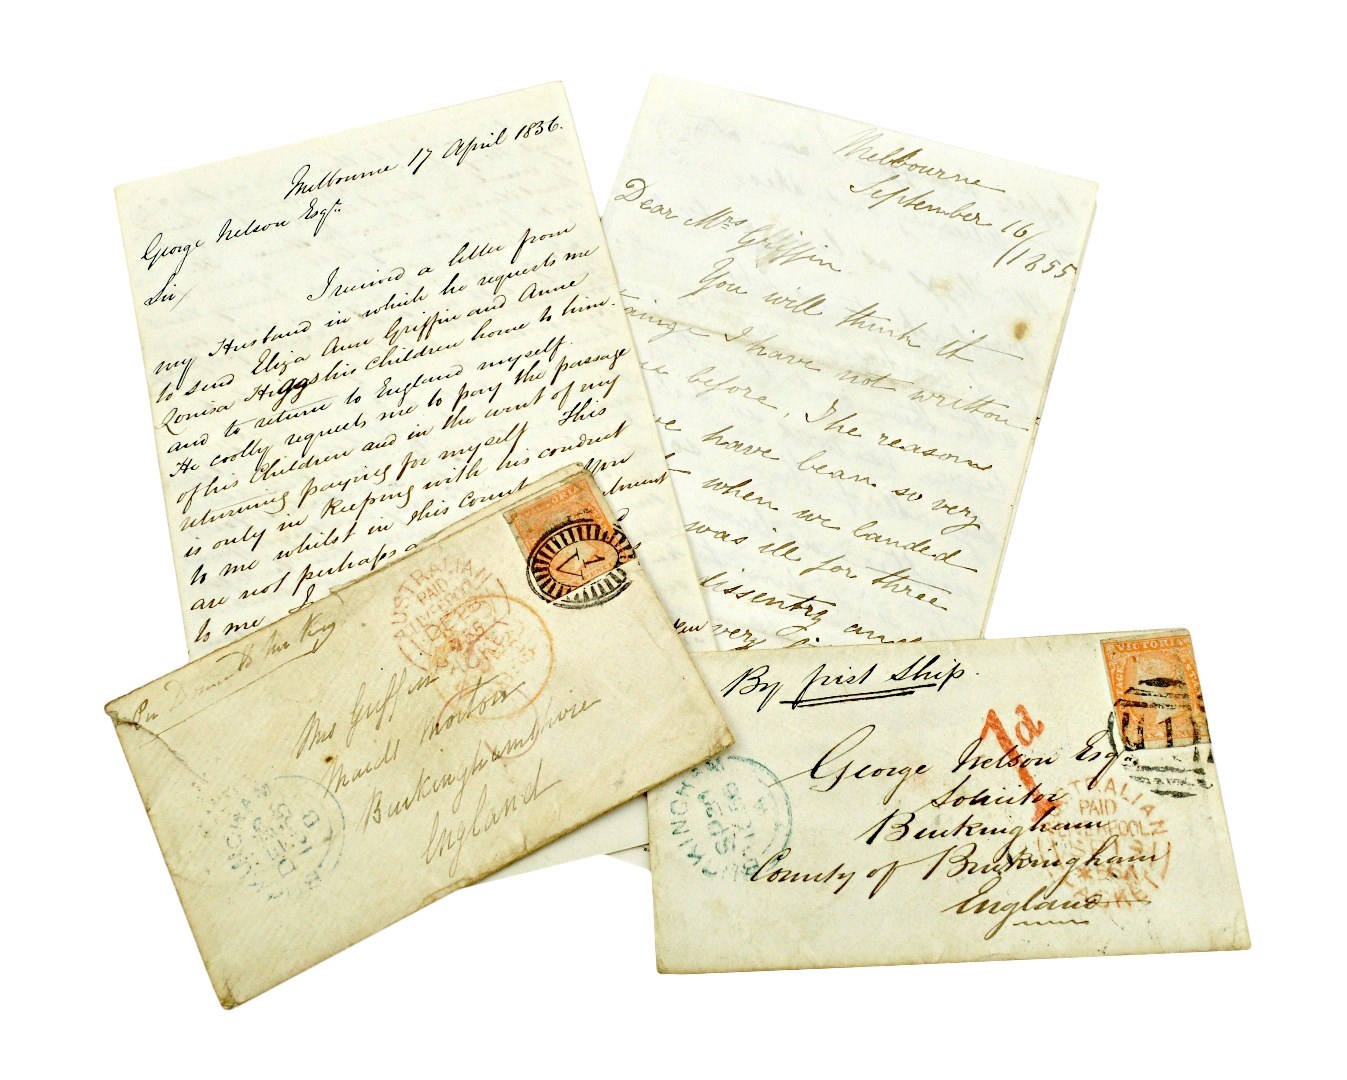 Melbourne 17 April 1836.
George Nelson Esqre
Sir,
I received a letter from
my Husband in which he requests me
to send Eliza Ann Griffin and Anne
Louisa Higgs his children home to him.
and to return to England myself.
He coolly requests me to pay the passage
of his children and in the event of my
returning paying for myself. This
is only in keeping with his conduct
to me whilst in this Count You
are not perhaps a
to me I
Melbourne
September 16/1855
Dear Mrs Griffin
You will think it
I have not written
before. The reasons
have been so very
when we landed
was ill for three
dissentry and
very
Mrs Griffin
Maids Morton
Buckinghamshire
England
VICTORIA
1 V
AUSTRALIAN
PAID
LIVERPOOL
DE
BUCKINGHAM
DE
By first Ship.
VICTORIA
1
1d
George Nelson Esqre
Solicitor
Buckingham
County of Buckingham
England
BUCKINGHAM
SP
AUSTRALIAN
PAID
LIVERPOOL
PACKET